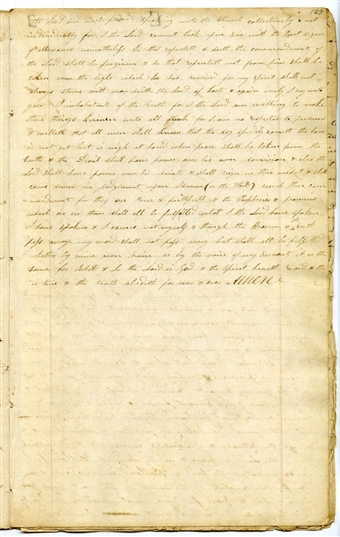 the Lord am well pleased speaking unto the Church collectively & not
individually for I the Lord cannot look upon sin with the least degree
of allowance nevertheless he that repenteth & doeth the commandments of
the Lord shall be forgiven & he that repenteth not from him shall be
taken even the light which he has received for my spirit shall not
always strive with man saith the Lord of hosts & again verily I say unto
you O inhabitants of the Earth I the Lord am willing to make
these things known unto all flesh for I am no respecter to persons
& willeth that all men shall know that the day speedily cometh the hour
is not yet but is nigh at hand when peace shall be taken from the
Earth & the Devil shall have power over his own dominion & also the
Lord shall have power over his saints & shall reign in their midst & shall
come down in judgement upon Idumea (or the World) search these com
mandments for they are true & faithfull & the Prophecies & promises
which are in them shall all be fulfilled what I the Lord have spoken
I have spoken & I excuse not myself & though the Heaven & Earth
pass away my word shall not pass away but shall all be fulfilled
whether by mine own voice or by the voice of my servants it is the
same for Behold & Lo the Lord is God & the Spirit beareth record & the
is true & the truth abideth forever & ever AMEN